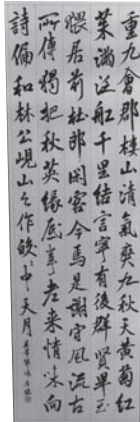 重九會郡樓山清氣爽九秋天黃菊紅
茱滿泛船千里結言寧有後群賢畢至
猥居前杜郎閑客今焉是謝守風流古
所傳獨把秋英緣底事老來情味向
詩偏和林公峴山之作皎皎中天月